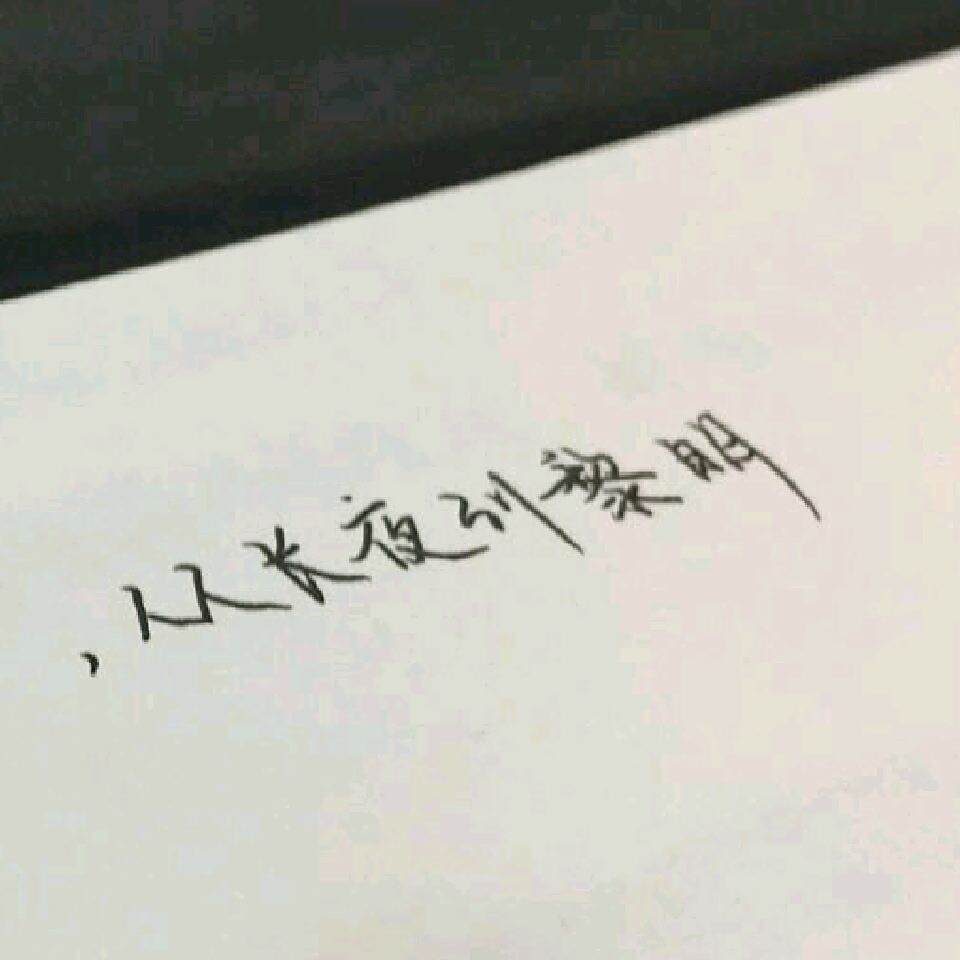 ，从长夜到黎明